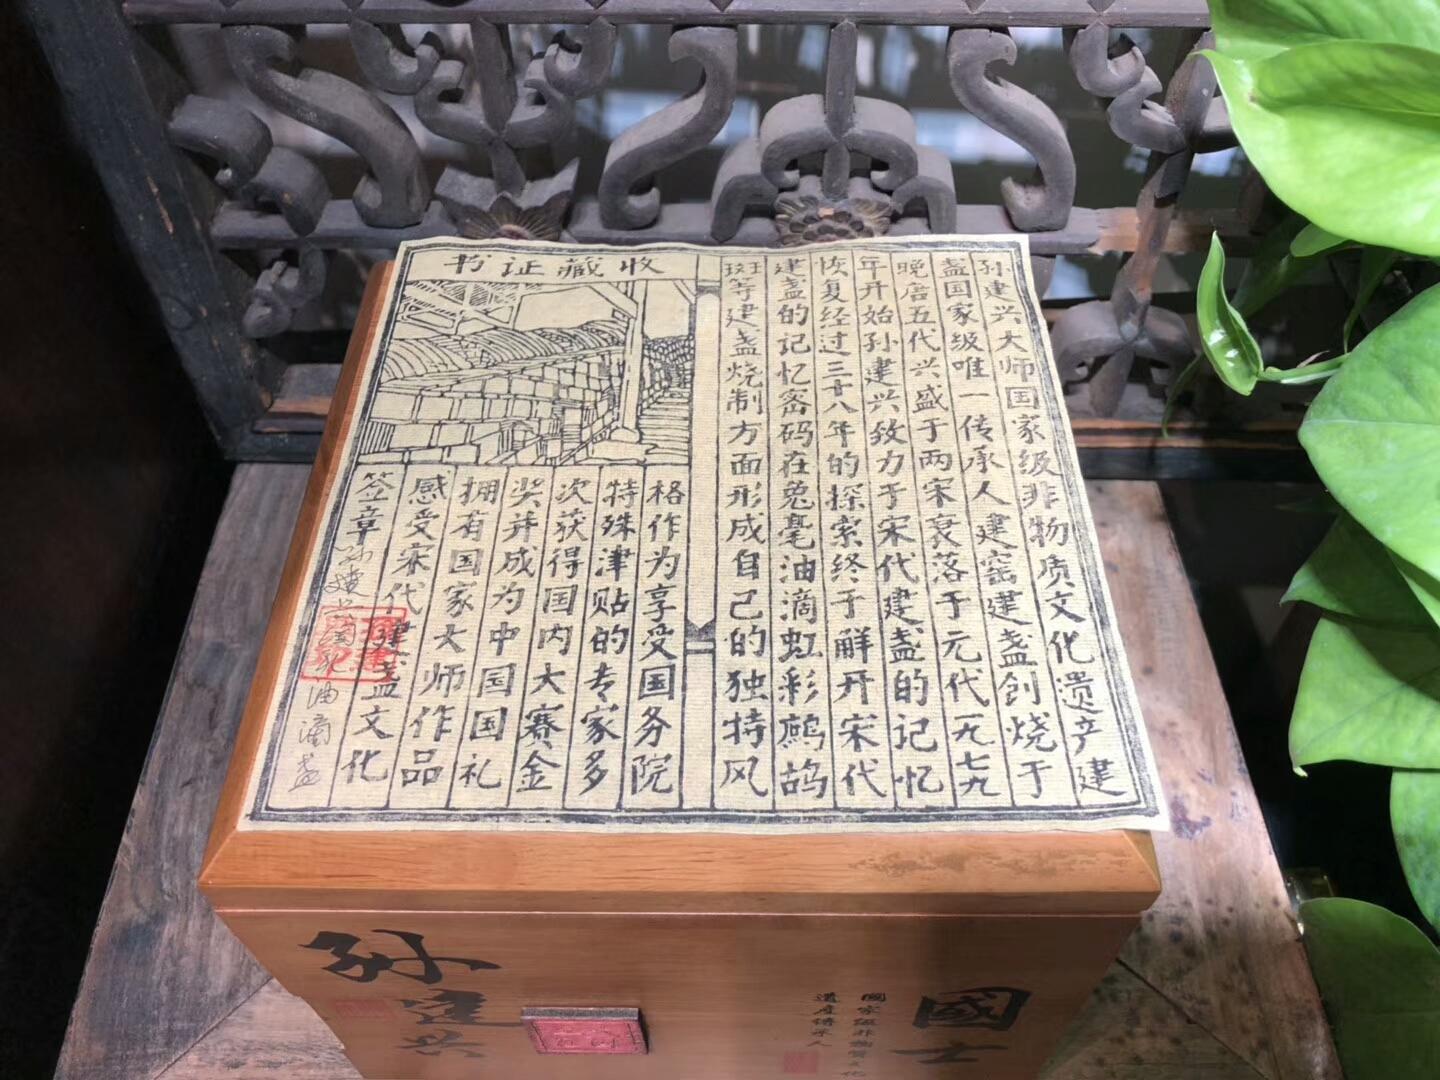 孙建兴大师国家级非物质文化遗产建
盏国家级唯一传承人建窑建盏创烧于
晚唐五代兴盛于两宋衰落于元代一九七九
年开始孙建兴致力于宋代建盏的记忆
恢复经过三十八年的探索终于解开宋代
建盏的记忆密码在兔毫油滴虹彩鹧鸪
斑等建盏烧制方面形成自己的独特风
收藏证书
格作为享受国务院
特殊津贴的专家多
次获得国内大赛金
奖并成为中国国礼
拥有国家大师作品
感受宋代建盏文化
签章孙建兴
油滴盏
國士
國家級非物質文化
遺產傳承人
孙建兴